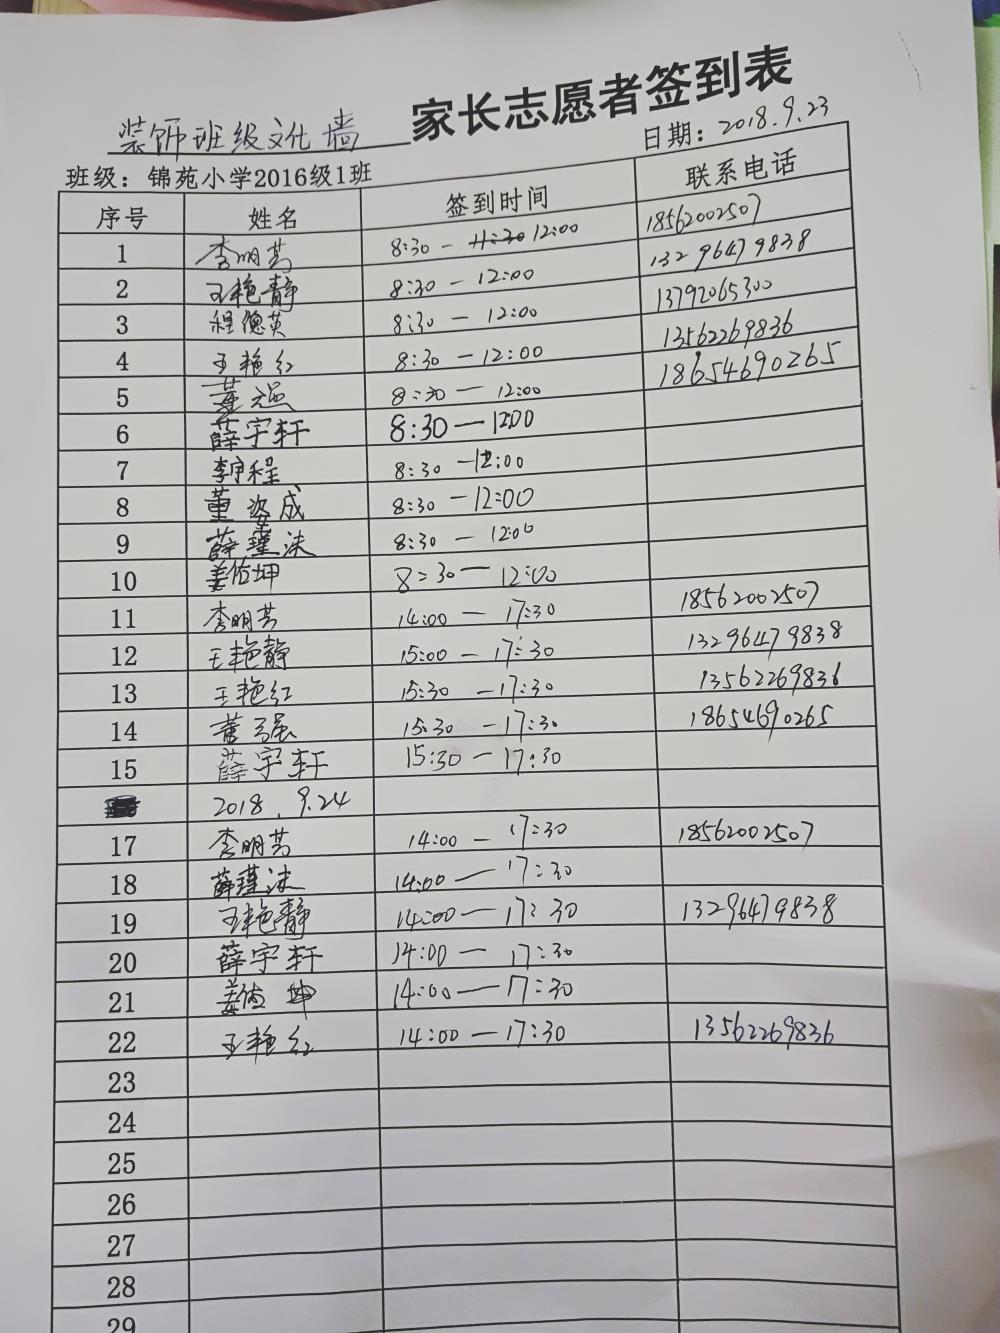 装饰班级文化墙 家长志愿者签到表
日期：2018.9.23
班级：锦苑小学2016级1班
序号 姓名 签到时间 联系电话
1 李明芳 8:30 - 11:30 12:00 18562002507
2 王艳静 8:30 - 12:00 13296479838
3 程德英 8:30 - 12:00 13792065300
4 王艳红 8:30 - 12:00 13562269836
5 董强 8:30 - 12:00 18654690265
6 薛宇轩 8:30 - 12:00
7 李宇程 8:30 - 12:00
8 董姿成 8:30 - 12:00
9 薛瑾沫 8:30 - 12:00
10 姜佑坤 8:30 - 12:00
11 李明芳 14:00 - 17:30 18562002507
12 王艳静 15:00 - 17:30 13296479838
13 王艳红 15:30 - 17:30 13562269836
14 董强 15:30 - 17:30 18654690265
15 薛宇轩 15:30 - 17:30
2018.9.24
17 李明芳 14:00 - 17:30 18562002507
18 薛瑾沫 14:00 - 17:30
19 王艳静 14:00 - 17:30 13296479838
20 薛宇轩 14:00 - 17:30
21 姜佑坤 14:00 - 17:30
22 王艳红 14:00 - 17:30 13562269836
23
24
25
26
27
28
29